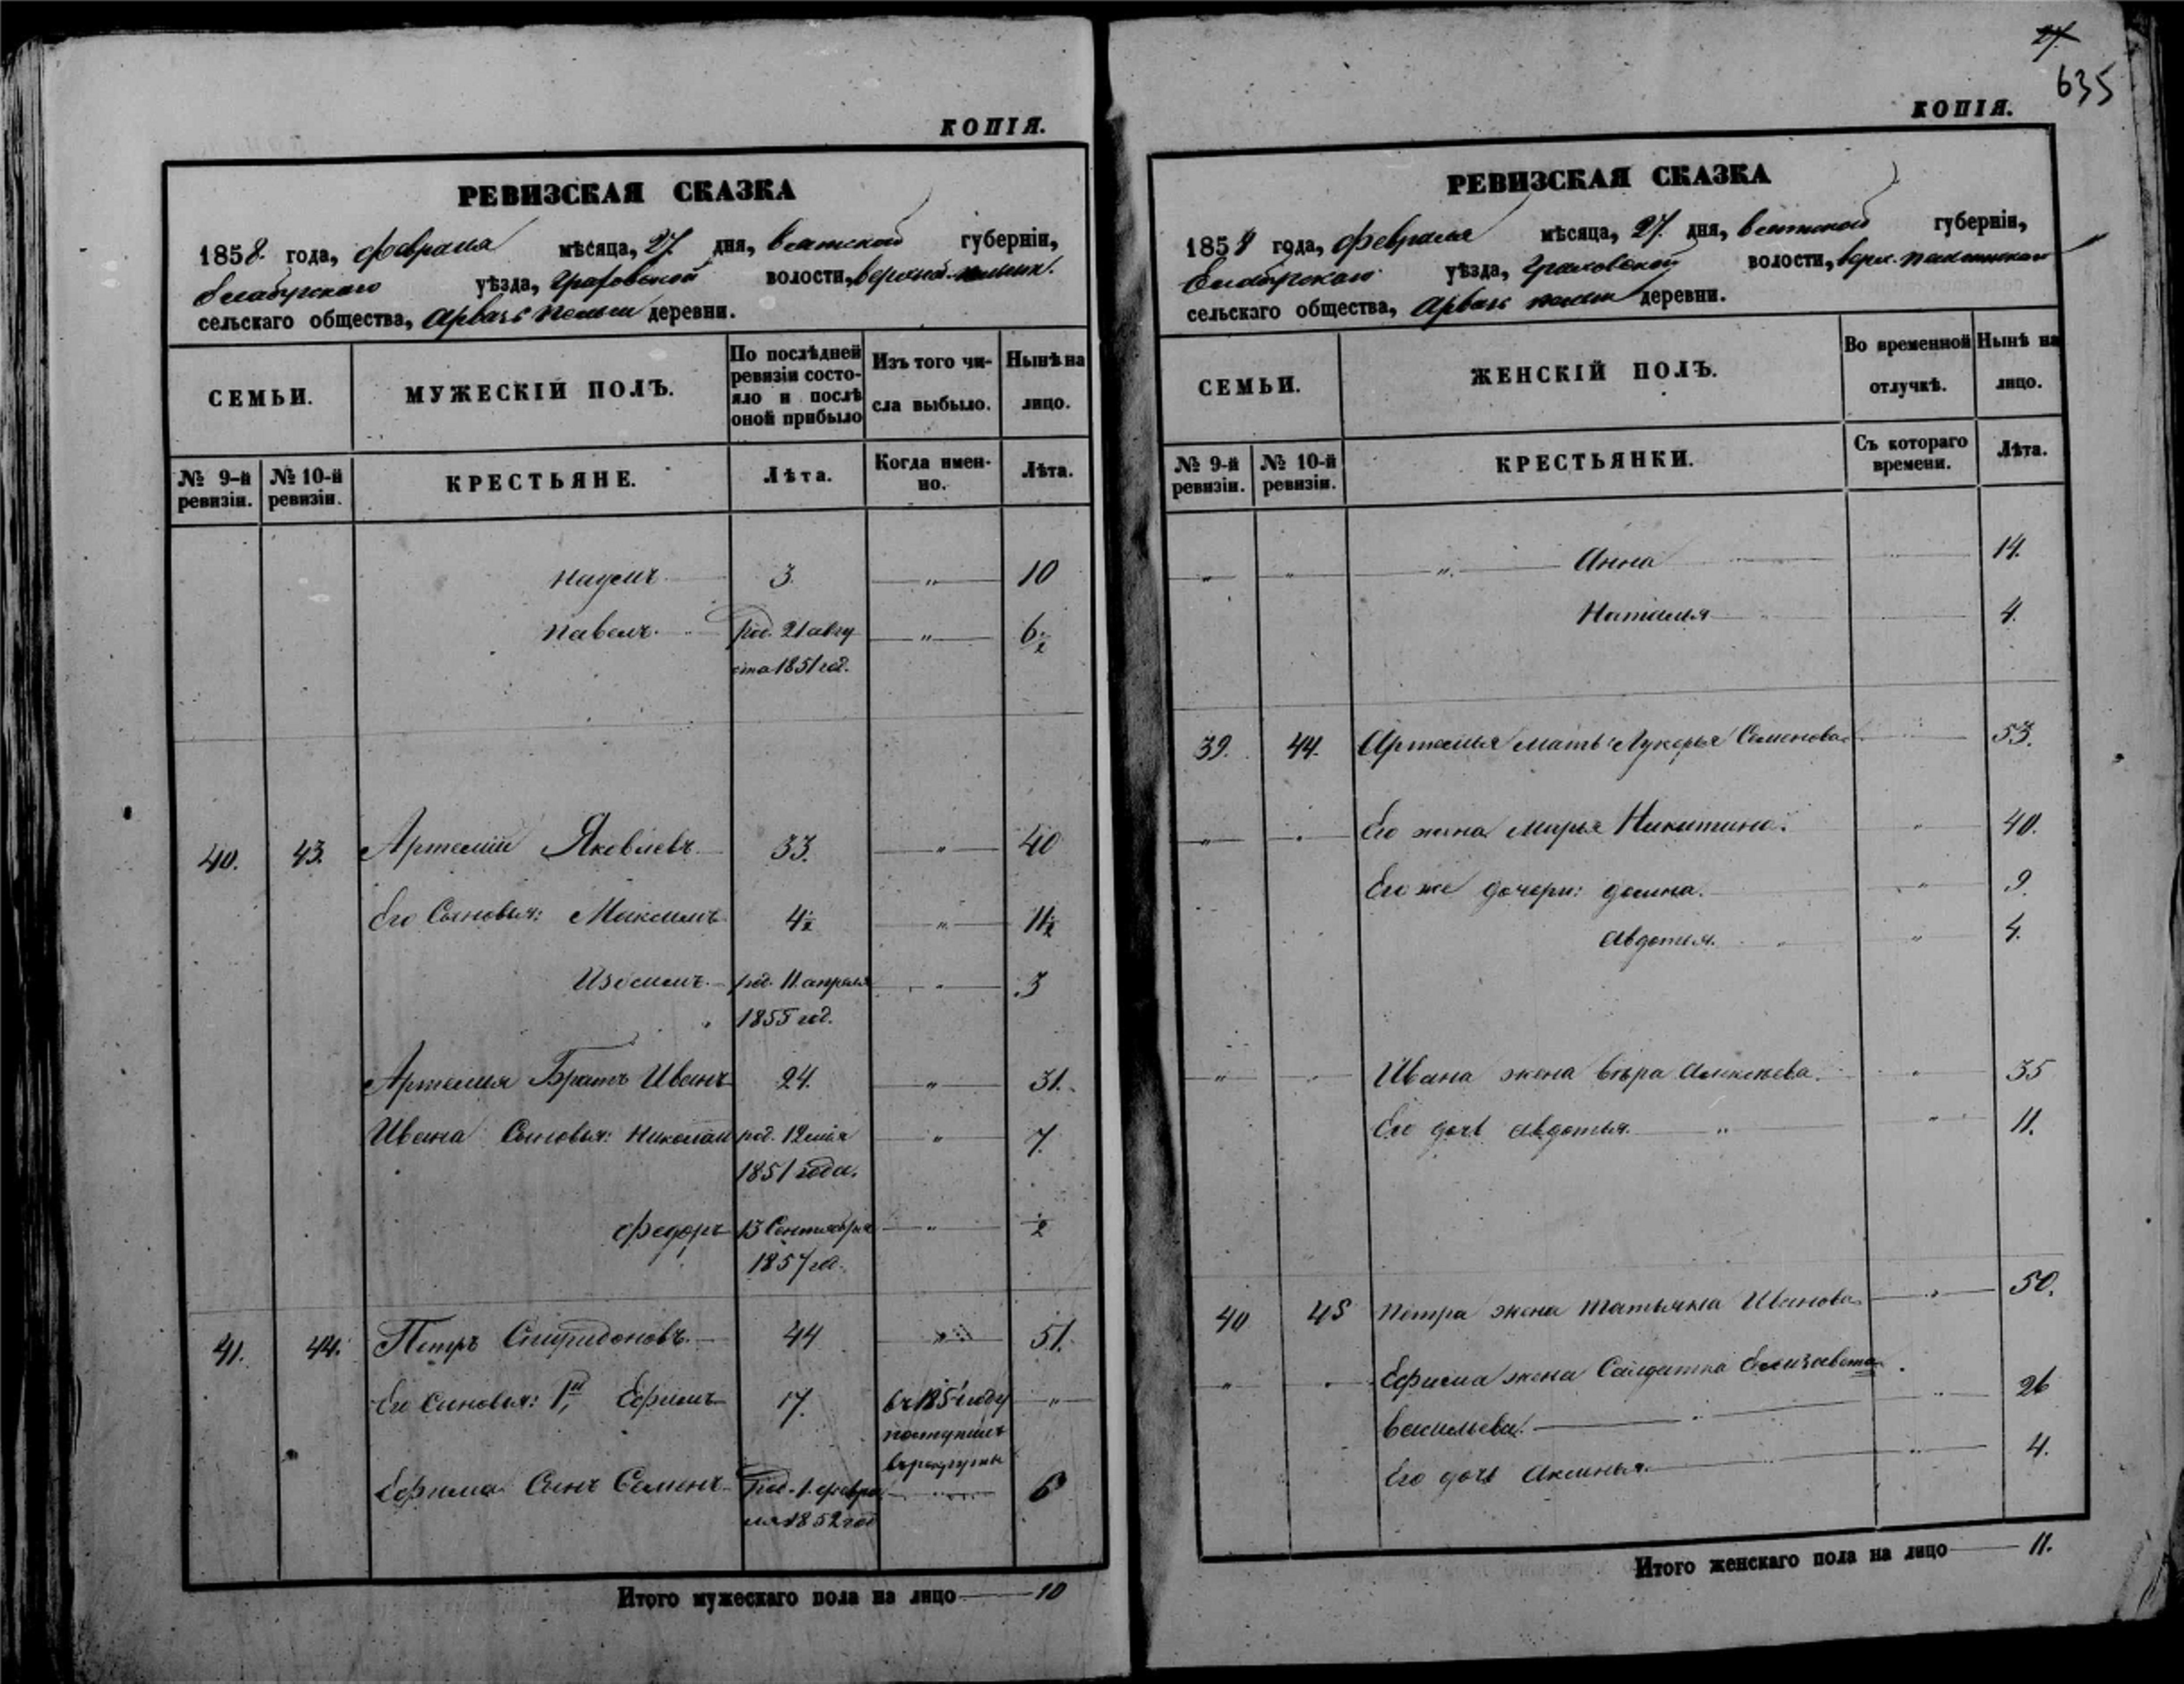 КОПІЯ.
РЕВИЗСКАЯ СКАЗКА
1858. года, февраля мѣсяца, 27. дня, вятской губерніи,
Елабугскаго уѣзда, Граховской волости,
сельскаго общества, Арвазь пельги деревни.
СЕМЬИ. МУЖЕСКІЙ ПОЛЪ. По послѣдней ревизіи состояло и послѣ оной прибыло Изъ того числа выбыло. Нынѣ на лицо.
№ 9-й ревизіи. № 10-й ревизіи. КРЕСТЬЯНЕ. Лѣта. Когда именно. Лѣта.
наумъ 3. " 10
павелъ. род. 21 авгу " 6½
ста 1851 год.
40. 43. Артемій Яковлевъ 33. " 40
Его Сыновья: Максимъ 4½ " 11½
Изосимъ род. 11 апреля " 3
1855 год.
Артемия Братъ Иванъ 24. " 31.
Ивана Сыновья: Николай род. 12 мая " 7.
1851 года.
Федоръ 13 Сентября " ½
1857 го.
41. 44. Петръ Спиридоновъ. 44 " 51.
Его Синовья: 1й, Ефимъ 17. въ 1854 году "
поступилъ
врекруты
Ефима Сынъ Семенъ Род. 1. февра " 6
ля 1852 год
Итого мужескаго пола на лицо 10
27.
635
КОПІЯ.
РЕВИЗСКАЯ СКАЗКА
1858 года, февраля мѣсяца, 27. дня, вятской губерніи,
Елабугскаго уѣзда, Граховской волости,
сельскаго общества, Арвазь пельги деревни.
СЕМЬИ. ЖЕНСКІЙ ПОЛЪ. Во временной отлучкѣ. Нынѣ на лицо.
№ 9-й ревизіи. № 10-й ревизіи. КРЕСТЬЯНКИ. Съ котораго времени. Лѣта.
" " " Анна 14.
Наталия 4.
39. 44. Артемия мать Лукерья Семенова 53.
" " Его жена марья Никитина. " 40.
Его же дочери: домна. " 9.
Авдотья. " 4.
" " Ивана жена вѣра Алексѣева. " 35
Его дочь авдотья. " " 11.
40 45 петра жена татьяна Иванова " 50.
" " Ефима жена Салдатка Елизавета
васильева. " " 26
Его дочь Аксинья. " 4.
Итого женскаго пола на лицо 11.